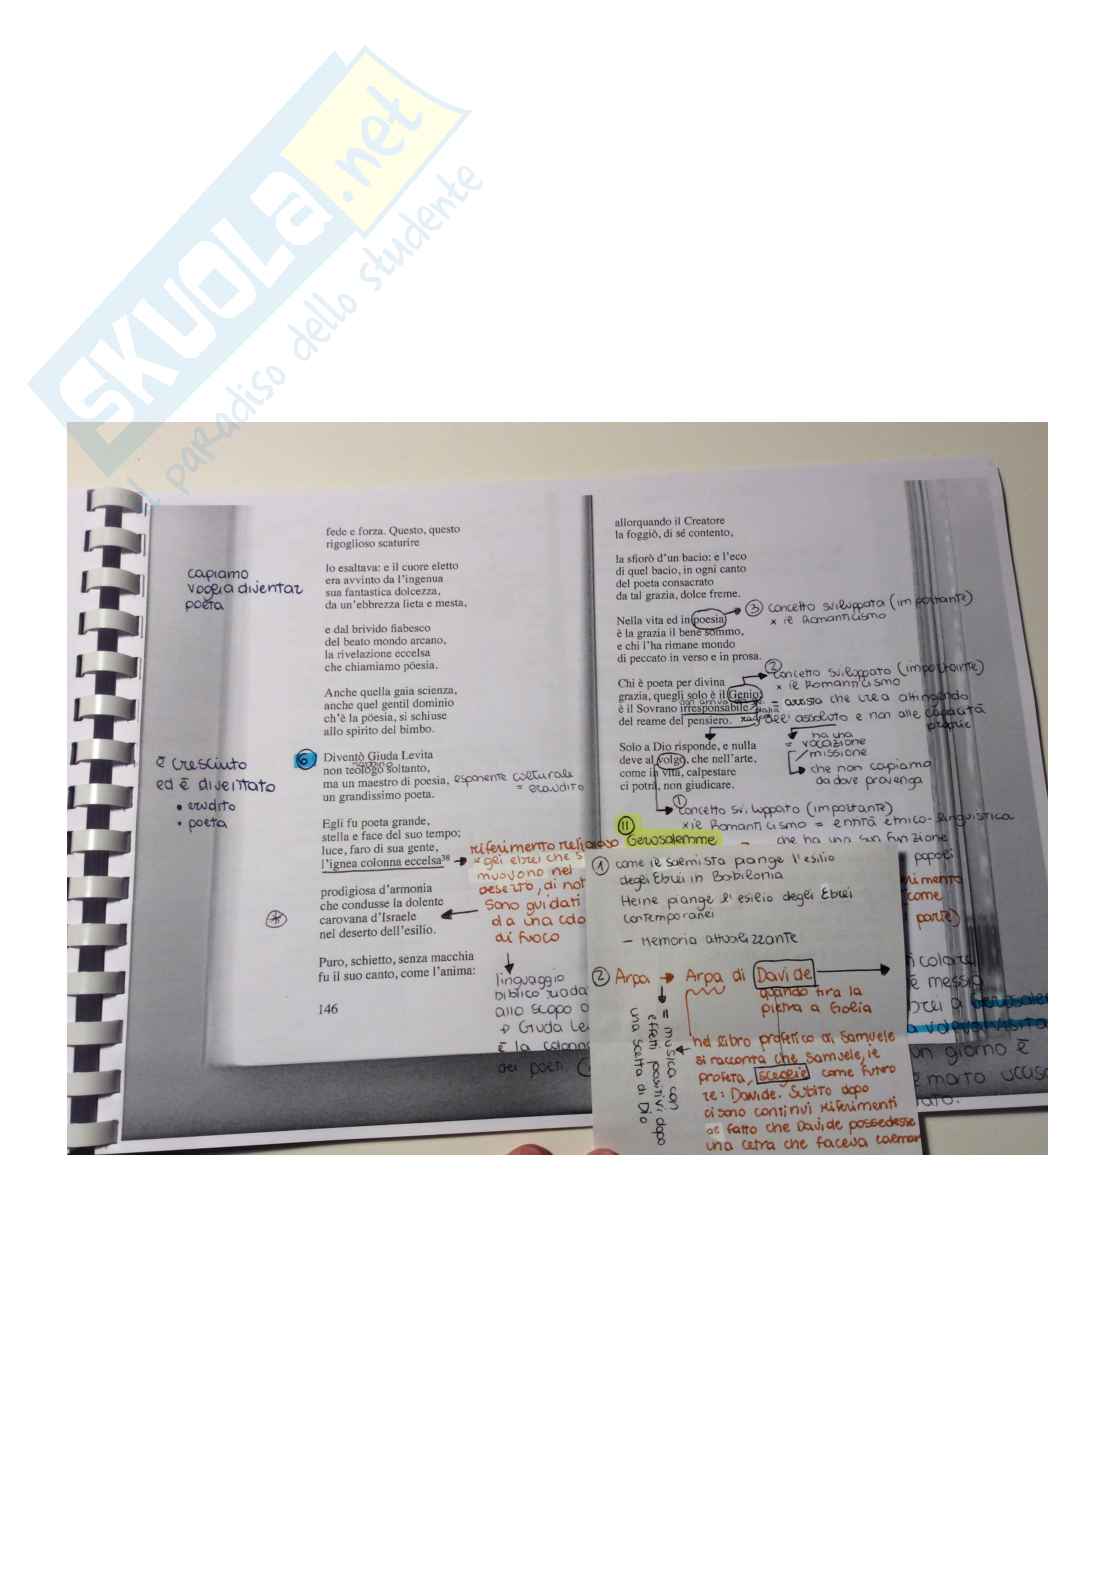 SKUOLA.net
il paradiso dello studente
fede e forza. Questo, questo
rigoglioso scaturire
lo esaltava: e il cuore eletto
era avvinto da l'ingenua
sua fantastica dolcezza,
da un'ebbrezza lieta e mesta,
e dal brivido fiabesco
del beato mondo arcano,
la rivelazione eccelsa
che chiamiamo pöesia.
Anche quella gaia scienza,
anche quel gentil dominio
ch'è la pöesia, si schiuse
allo spirito del bimbo.
Diventò Giuda Levita
non teologo soltanto,
ma un maestro di poesia,
un grandissimo poeta.
Egli fu poeta grande,
stella e face del suo tempo;
luce, faro di sua gente,
l'ignea colonna eccelsa³⁸
prodigiosa d'armonia
che condusse la dolente
carovana d'Israele
nel deserto dell'esilio.
Puro, schietto, senza macchia
fu il suo canto, come l'anima:
146
capiamo
voglia diventar
poeta
6
è cresciuto
ed è diventato
• erudito
• poeta
esponente culturale
= erudito
riferimento religioso
gli ebrei che s
muovono nel
deserto, di not
sono guidati
da una colo
di fuoco
linguaggio
biblico riada
allo scopo
Giuda Le
è la colonna
dei poeti
allorquando il Creatore
la foggiò, di sé contento,
la sfiorò d'un bacio: e l'eco
di quel bacio, in ogni canto
del poeta consacrato
da tal grazia, dolce freme.
Nella vita ed in poesia
è la grazia il bene sommo,
e chi l'ha rimane mondo
di peccato in verso e in prosa.
Chi è poeta per divina
grazia, quegli solo è il Genio:
è il Sovrano irresponsabile
del reame del pensiero.
Solo a Dio risponde, e nulla
deve al volgo, che nell'arte,
come in vita, calpestare
ci potrà, non giudicare.
3 concetto sviluppato (importante)
x il Romanticismo
2
concetto sviluppato (importante)
x il Romanticismo
= artista che crea attingendo
dell'assoluto e non alle capacità
proprie
= ha una
vocazione
missione
che non capiamo
da dove provenga
1
concetto sviluppato (importante)
x il Romanticismo = entità etnico-linguistica
che ha una sua funzione
11
Gerusalemme
popoli
come
parte)
è messia
un giorno è
è morto ucciso
1 come il salmista piange l'esilio
degli Ebrei in Babilonia
Heine piange l'esilio degli Ebrei
contemporanei
– Memoria attualizzante
2 Arpa → Arpa di Davide
quando tira la
pietra a Golia
= musica con
effetti positivi dopo
una scelta di Dio
nel libro profetico di Samuele
si racconta che Samuele, il
profeta, sceglie come futuro
re: Davide. Subito dopo
ci sono continui riferimenti
al fatto che Davide possedesse
una cetra che faceva calmar